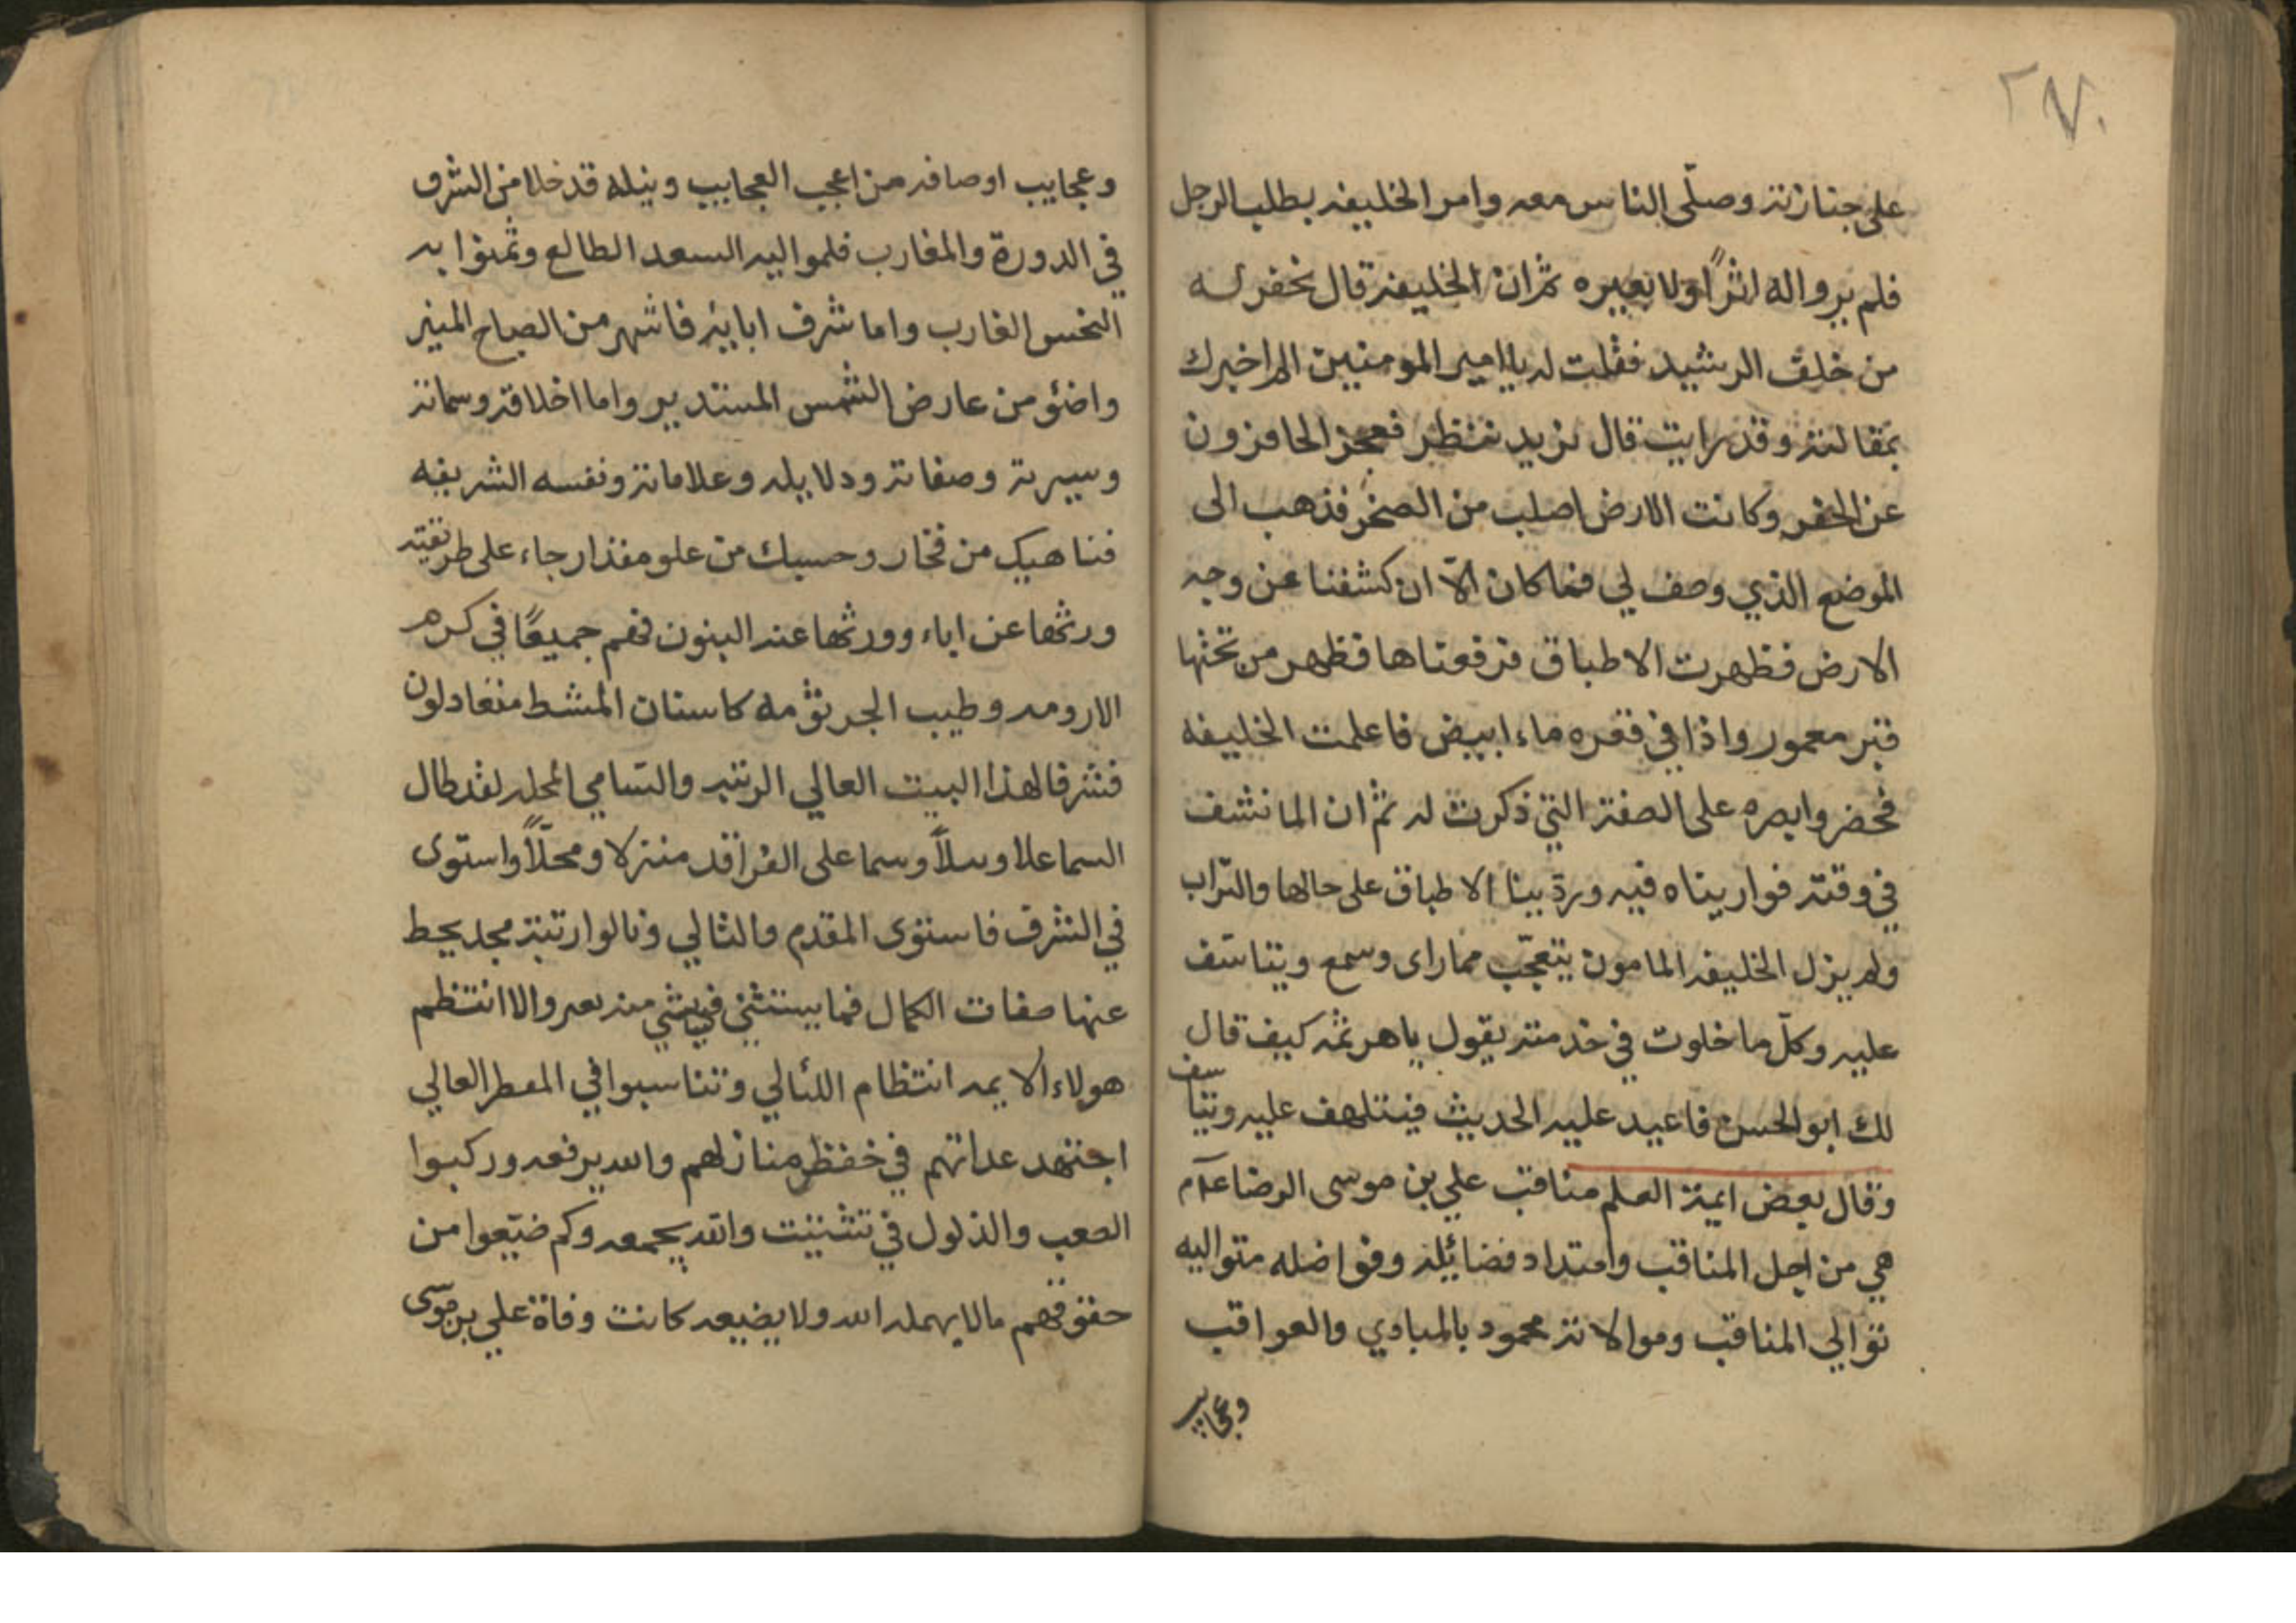 ٢٧٠
على جنازته وصلّى الناس معه وامر الخليفه بطلب الرجل
فلم يرواله اثرًا ولا بعيره ثم ان الخليفة قال نحفر له
من خلف الرشيد فقلت له يا امير المومنين الم اخبرك
بمقالته وقد رايت قال نريد ننظر فعجز الحافزون
عن الحفر وكانت الارض اصلب من الصخر فذهب الى
الموضع الذي وصف لي فما كان الّا ان كشفنا عن وجه
الارض فظهرت الاطباق فرفعناها فظهر من تحتها
قبر معمور واذا في قعره ماء ابيض فاعلمت الخليفه
فحضر وابصره على الصفة التي ذكرت له ثم ان الما نشف
في وقته فواريناه فيه وردينا الاطباق على حالها والتراب
ولم يزل الخليفه المامون يتعجّب مماراى وسمع ويتاسّف
عليه وكلّ ما خلوت في خدمته يقول ياهرثمه كيف قال
لك ابو الحسن فاعيد عليه الحديث فيتلهف عليه ويتاسف
وقال بعض ايمة العلم مناقب علي بن موسى الرضا
هي من اجل المناقب وامتداد فضائله وفواضله متواليه
توالي المناقب وموالاته محمود بالمبادي والعواقب
وعجايب
وعجايب اوصافه من اعجب العجايب ونيله قد خلا من الشرف
في الدورة والمغارب فلموا اليه السعد الطالع وثمنوا به
النحس الغارب واما شرف ابايئه فاشهر من الصباح المنير
واضئو من عارض الشمس المستدير واما اخلاقه وسماته
وسيرته وصفاته ودلايله وعلاماته ونفسه الشريفه
فناهيك من فخار وحسبك من علو مقدار جاء على طريقته
ورثها عن اباء وورثها عند البنون فهم جميعًا في كرم
الارومه وطيب الجرثومه كاسنان المشط متعادلون
فشرفا لهذا البيت العالي الرتبه والسامي المحله لقد طال
السما علا وسلاً وسما على الفراقد منزلا ومحلّاً واستوى
في الشرف فاستوى المقدم والثالي ونالوا رتبة مجد يحط
عنها صفات الكمال فما يستثني في شي منه بعر والا انتظم
هولاء الايمه انتظام اللئالي وتناسبوا في المعطر العالي
اجتهد عداتهم في خفظ منازلهم والله يرفعه وركبوا
الصعب والذلول في تشتيت والله يجمعه وكم ضيّعوا من
حقوقهم مالا يهمله الله ولا يضيعه كانت وفاة علي بن موسى